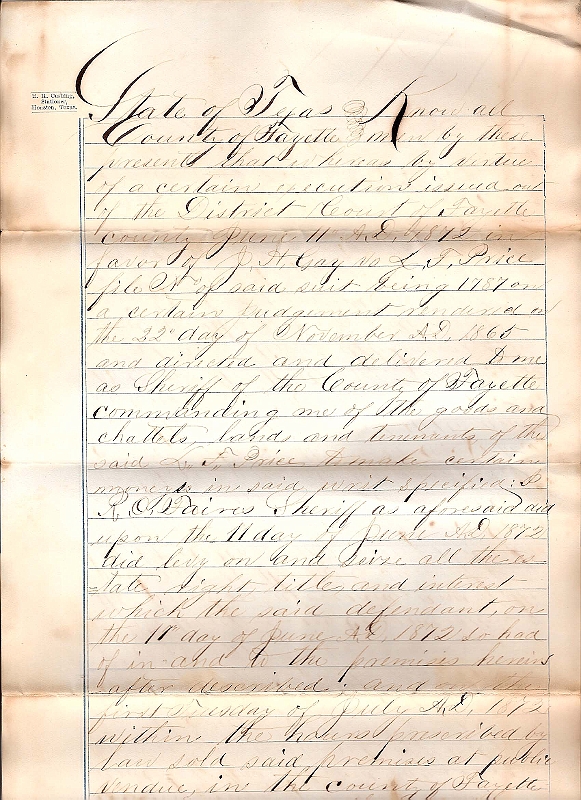 E. H. Cushing,
Stationer,
Houston, Texas.
State of Texas Know all
County of Fayette men by these
presents that whereas by virtue
of a certain execution issued out
of the District Court of Fayette
county June 11 A.D. 1872 in
favor of J. H. Gay vs L. F. Price
file No of said suit being 1787 on
a certain judgement rendered on
the 22d day of November A.D. 1865
and directed and delivered to me
as Sheriff of the County of Fayette
commanding me of the goods and
chattels lands and tenments of the
said L. F. Price to make certain
moneys in said writ specified: I
R. O. Faires Sheriff as aforesaid did
upon the 11 day of June A.D. 1872
did levy on and seize all the es-
tate, right, title and interest
which the said defendant, on
the 11" day of June A.D. 1872 so had
of in and to the premises herein
after described: and on the
first Tuesday of July A.D. 1872
within the hours prescribed by
law sold said premises at public
vendue, in the county of Fayette